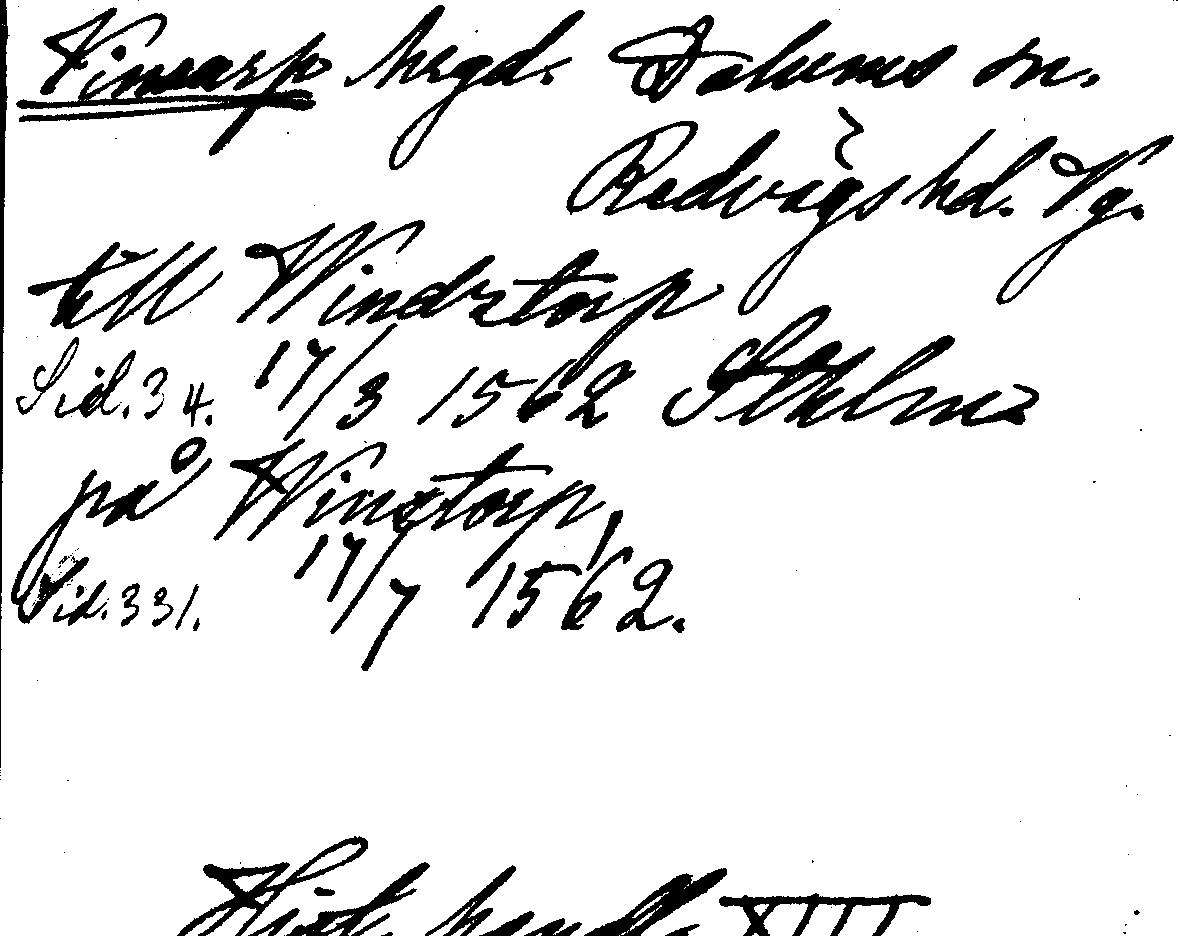 Vinsarp hrgd. Dalums sn.
Redvägs hd. Vg.
till Windztorp
Sid. 34. 17/3 1562 Sthlm
på Winstorp,
Sid. 331. 17/7 1562.
Hist. handl. XIII